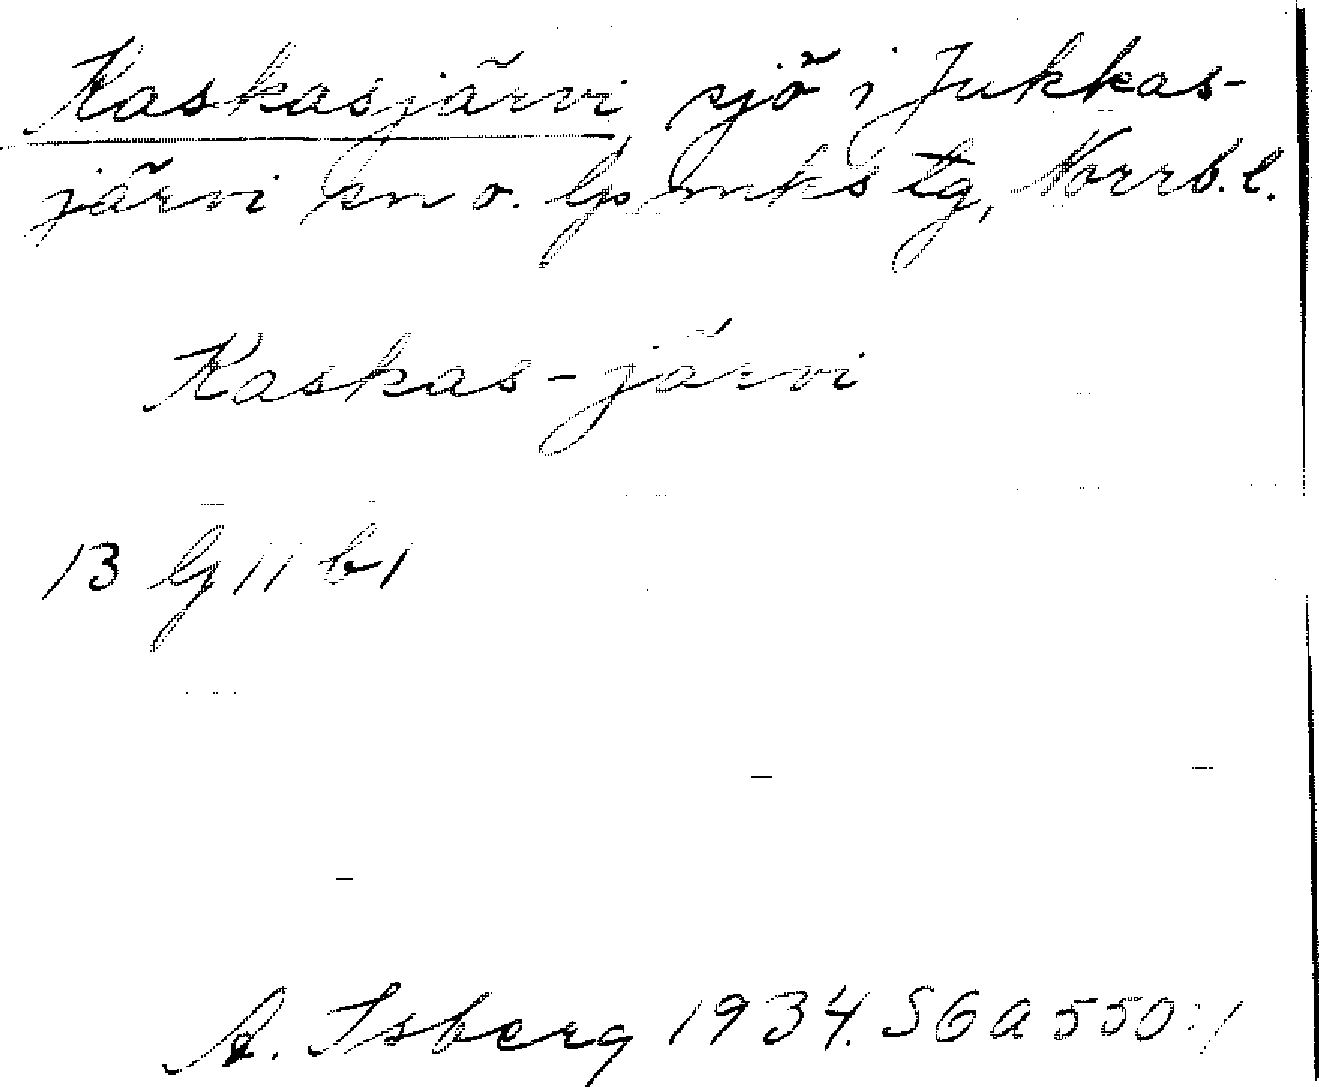 Kaskasjärvi sjö i Jukkas-
järvi sn o. lpmks tg, Norrb. l.
Kaskas-järvi
13 G 11 b 1
A. Isberg 1934. SGA 550:1